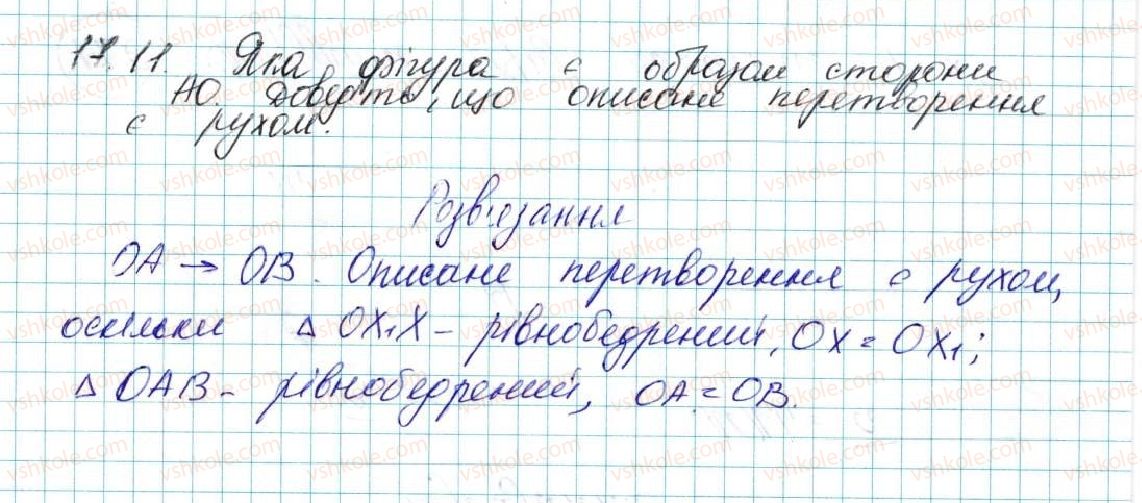 17.11. Яка фігура є образом сторони
АО. Доведіть, що описане перетворення
є рухом.
Розв'язання
OA → OB. Описане перетворення є рухом,
оскільки △ OX₁X - рівнобедрений, OX = OX₁;
△ OAB - рівнобедрений, OA = OB.